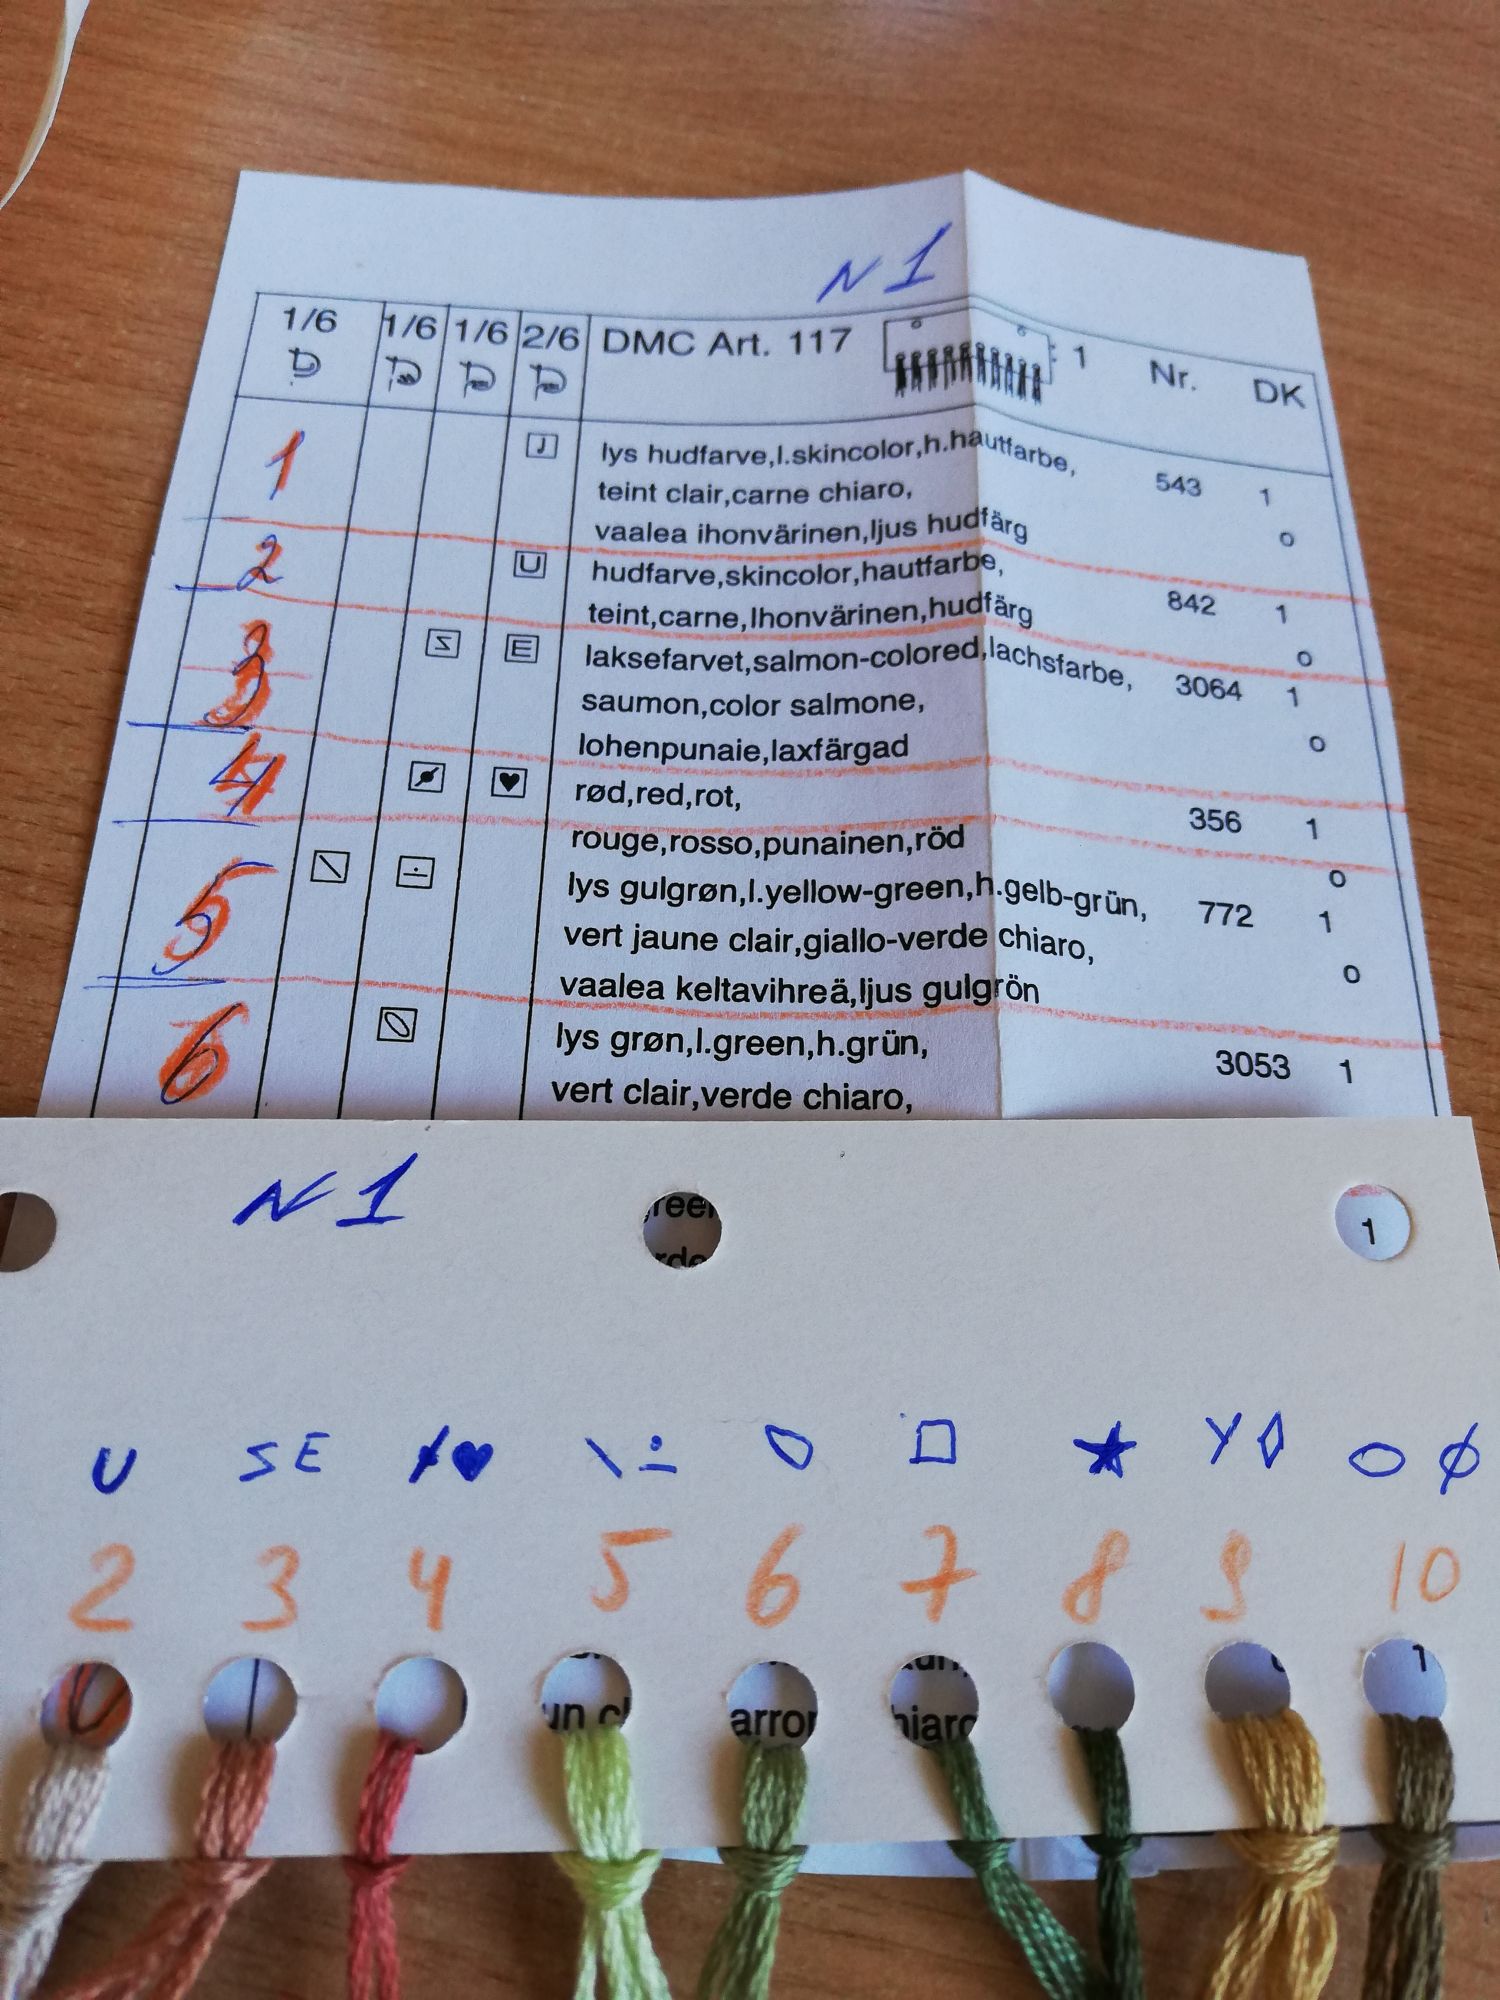 N 1
1/6 1/6 1/6 2/6 DMC Art. 117 1 Nr. DK
1 lys hudfarve,l.skincolor,h.hautfarbe, 543 1
teint clair,carne chiaro,
vaalea ihonvärinen,ljus hudfärg o
2 U hudfarve,skincolor,hautfarbe, 842 1
teint,carne,lhonvärinen,hudfärg o
3 S E laksefarvet,salmon-colored,lachsfarbe, 3064 1
saumon,color salmone,
lohenpunaie,laxfärgad o
4 ♥ rød,red,rot, 356 1
rouge,rosso,punainen,röd o
5 \ ÷ lys gulgrøn,l.yellow-green,h.gelb-grün, 772 1
vert jaune clair,giallo-verde chiaro,
vaalea keltavihreä,ljus gulgrön o
6 lys grøn,l.green,h.grün, 3053 1
vert clair,verde chiaro,
N 1
1
U S E ♥ \ ÷ □ ★ Y ◊ O Ø
2 3 4 5 6 7 8 9 10
1